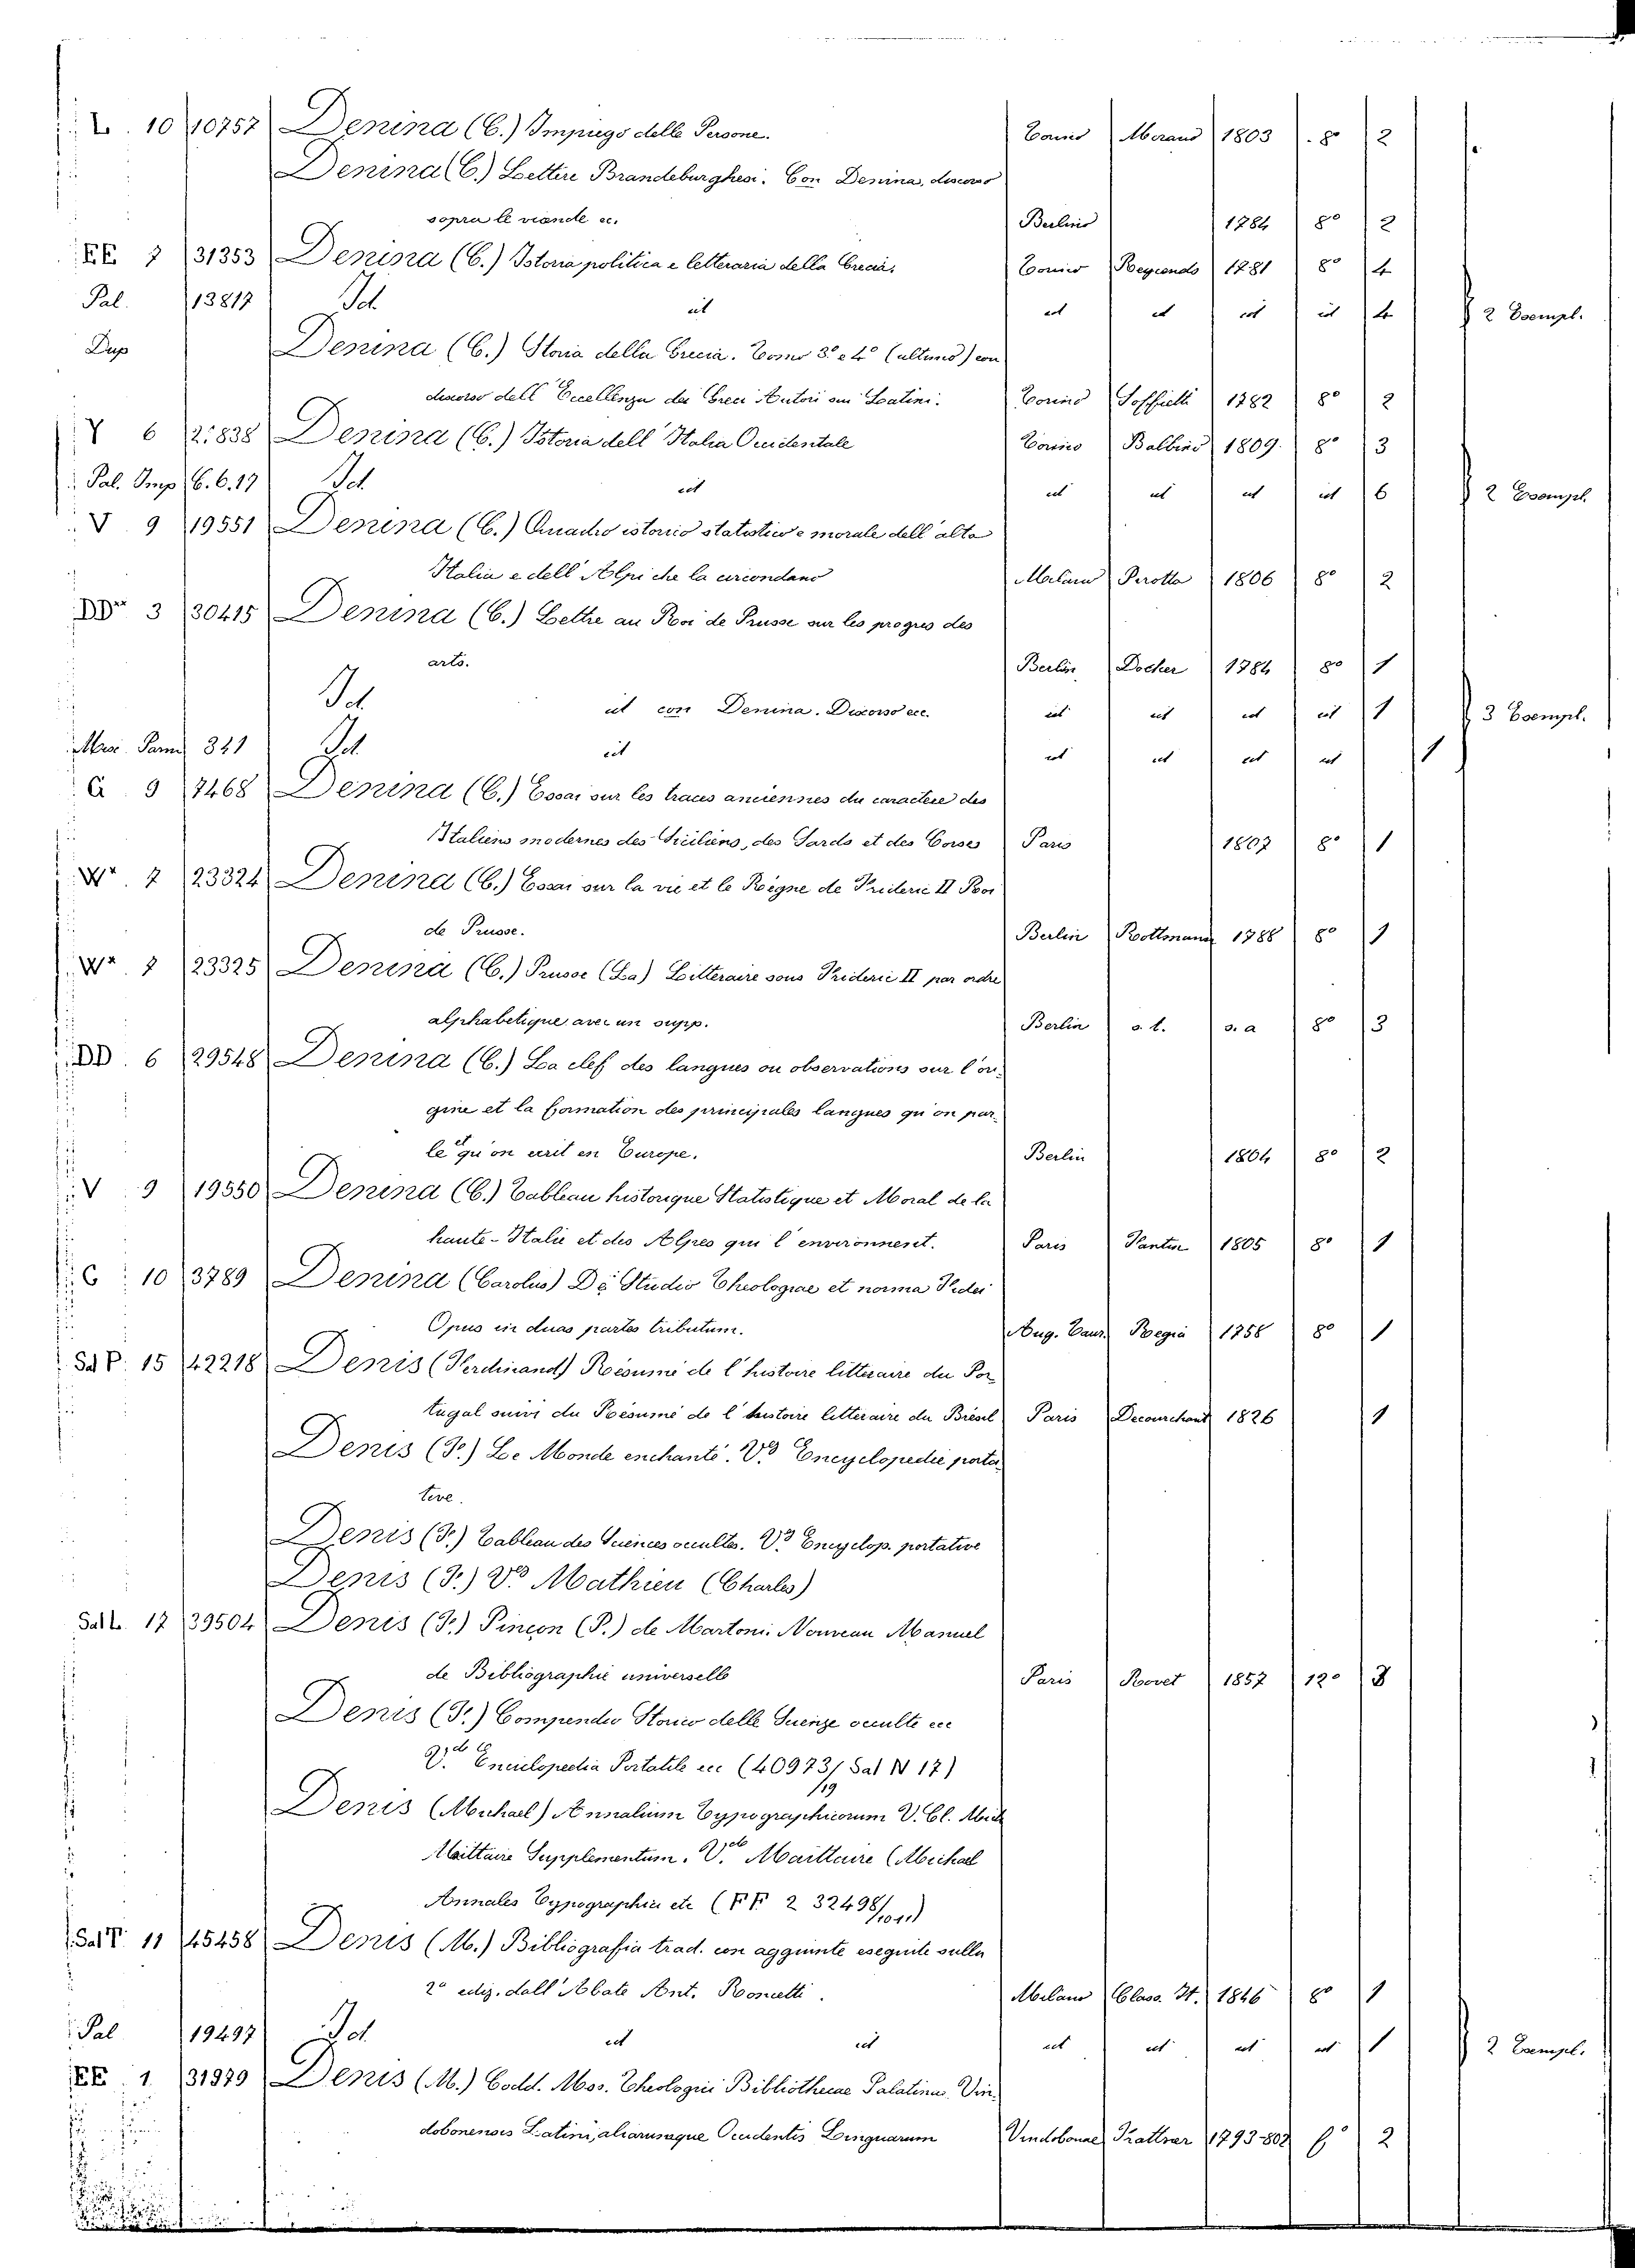 L. 10 10757 Denina (C.) Impiego delle Persone. Torino Morano 1803 8° 2
Denina (C.) Lettere Brandeburghesi. Con Denina, discorso
sopra le viande ec. Berlino 1784 8° 2
EE 7 31353 Denina (C.) Istoria politica e letteraria della Grecia. Torino Reycends 1781 8° 4
Pal. 13817 Id. id id id id id 4 2 Esempl.
Dup Denina (C.) Storia della Grecia. Tomo 3° e 4° (ultimo) con
discorso dell' Eccellenza dei Greci Autori sui Latini. Torino Soffietti 1782 8° 2
Y 6 21838 Denina (C.) Istoria dell' Italia Occidentale Torino Balbino 1809. 8° 3
Pal. Imp C.6.17 Id. id id id id id 6 2 Esempl.
V 9 19551 Denina (C.) Quadro istorico statistico e morale dell' alta
Italia e dell' Alpi che la circondano Milano Pirotta 1806 8° 2
DD 3 30415 Denina (C.) Lettre au Roi de Prusse sur les progres des
arts. Berlin Decker 1784 8° 1
Id. id con Denina. Discorso ecc. id id id id 1 3 Esempl.
Misc. Parm. 341 Id. id id id id id 1
G 9 7468 Denina (C.) Essai sur les traces anciennes du caractere des
Italiens modernes des Siciliens, des Sards et des Corses Paris 1807 8° 1
W 7 23324 Denina (C.) Essai sur la vie et le Règne de Frideric II Roi
de Prusse. Berlin Rottmann 1788 8° 1
W 7 23325 Denina (C.) Prusse (La) Litteraire sous Frideric II par ordre
alphabetique avec un supp. Berlin s. t. s. a 8° 3
DD. 6 29548 Denina (C.) La clef des langues ou observations sur l'ori-
gine et la formation des principales langues qu'on par-
le et qu'on ecrit en Europe. Berlin 1804 8° 2
V 9 19550 Denina (C.) Tableau historique Statistique et Moral de la
haute-Italie et des Alpes qui l'environnent. Paris Fantin 1805 8° 1
C 10 3789 Denina (Carolus) De Studio Theologiae et norma Fidei
Opus in duas partes tributum. Aug. Taur. Regia 1758 8° 1
Sal P. 15 42218 Denis (Ferdinand) Résumé de l'histoire litteraire du Por-
tugal suivi du Résumé de l'histoire litteraire du Brésil Paris Decourchant 1826 1
Denis (F.) Le Monde enchanté. V° Encyclopedie porta-
tive.
Denis (F.) Tableau des Sciences occultes. V° Encyclop. portative
Denis (F.) V° Mathieu (Charles)
Sal L. 17 39504 Denis (F.) Pinçon (P.) de Martoni. Nouveau Manuel
de Bibliographie universelle Paris Rovet 1857 12° 3
Denis (F.) Compendio Storico delle Scienze occulte ecc
V. Enciclopedia Portatile ecc (40973/19 Sal N 17)
Denis (Michael) Annalium Typographicorum V. Cl. Mich
Maittaire Supplementum. V. Maittaire (Michael
Annales Typographici etc (FF 2 32498/1011)
Sal T. 11 45458 Denis (M.) Bibliografia trad. con aggiunte eseguite sulla
2a ediz. dall' Abate Ant. Roncetti. Milano Class. It. 1846 8° 1
Pal 19497 Id. id id id id id id 1 2 Esempl.
EE 1. 31979 Denis (M.) Codd. Mss. Theologici Bibliothecae Palatinae Vin-
dobonensis Latini, aliarumque Occidentis Linguarum Vindobonae Trattner 1793-802 f° 2